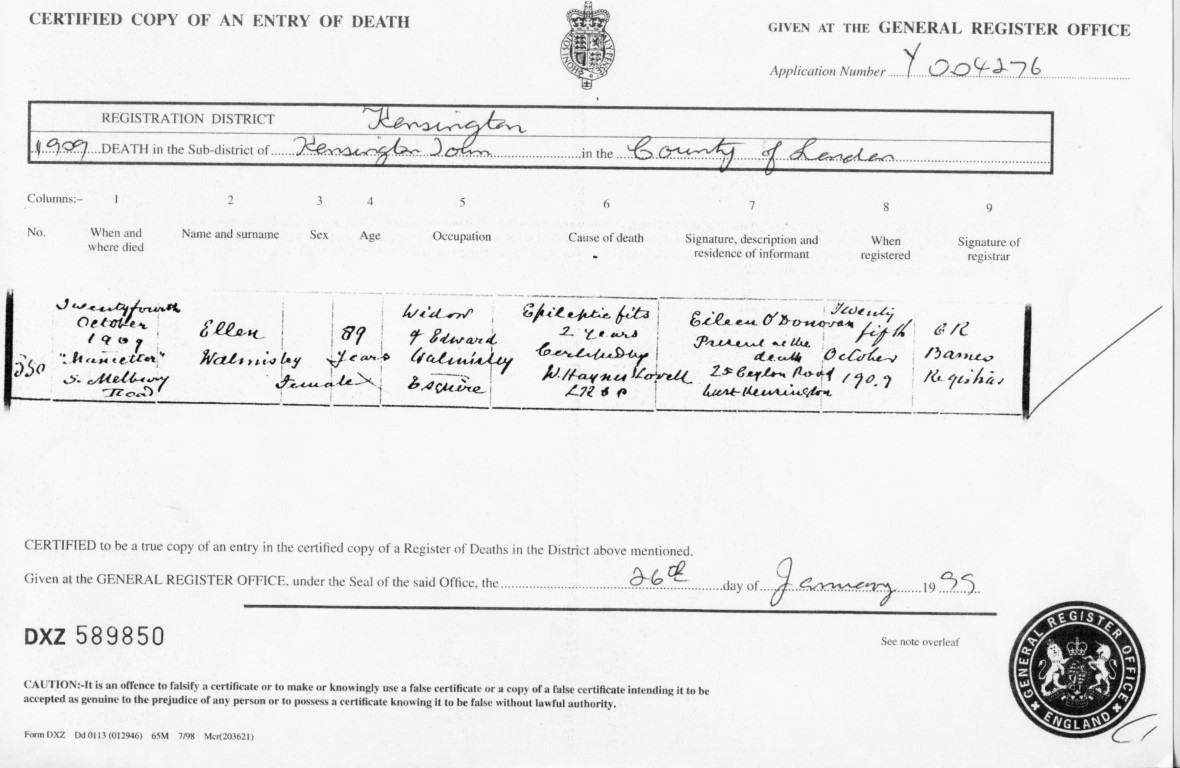 CERTIFIED COPY OF AN ENTRY OF DEATH
GIVEN AT THE GENERAL REGISTER OFFICE
Application Number Y 004276
REGISTRATION DISTRICT Kensington
1909 DEATH in the Sub-district of Kensington Town in the County of London
Columns:- 1 2 3 4 5 6 7 8 9
No. When and where died Name and surname Sex Age Occupation Cause of death Signature, description and residence of informant When registered Signature of registrar
250
Twentyfourth
October
1909
5. Melbury
Road
Ellen
Walmisley
Female
89
Years
Widow
of Edward
Walmisley
Esquire
Epileptic fits
2 Years
Certified by
W. Haynes Lovell
Eileen O'Donovan
Present at the
death
25 Ceylon Road
West Kensington
Twenty
fifth
October
1909
Barnes
Registrar
CERTIFIED to be a true copy of an entry in the certified copy of a Register of Deaths in the District above mentioned.
Given at the GENERAL REGISTER OFFICE, under the Seal of the said Office, the 26th day of January 1999
DXZ 589850
See note overleaf
CAUTION:-It is an offence to falsify a certificate or to make or knowingly use a false certificate or a copy of a false certificate intending it to be
accepted as genuine to the prejudice of any person or to possess a certificate knowing it to be false without lawful authority.
Form DXZ Dd 0113 (012946) 65M 7/98 Mcr(203621)
GENERAL REGISTER OFFICE
ENGLAND